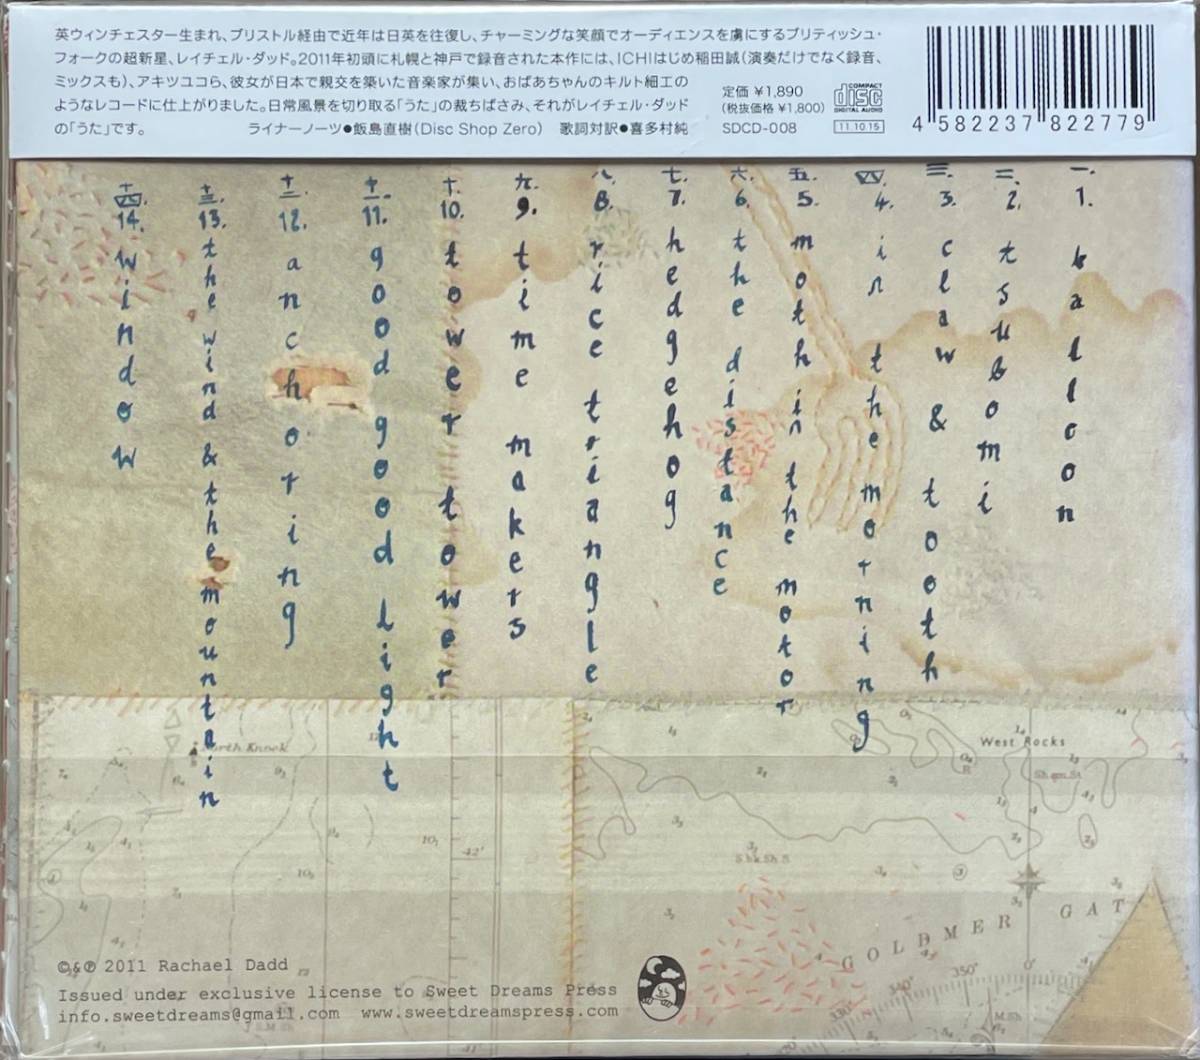 英ウィンチェスター生まれ、ブリストル経由で近年は日英を往復し、チャーミングな笑顔でオーディエンスを虜にするブリティッシュ・
フォークの超新星、レイチェル・ダッド。2011年初頭に札幌と神戸で録音された本作には、ICHIはじめ稲田誠(演奏だけでなく録音、
ミックスも)、アキツユコら、彼女が日本で親交を築いた音楽家が集い、おばあちゃんのキルト細工の
ようなレコードに仕上がりました。日常風景を切り取る「うた」の裁ちばさみ、それがレイチェル・ダッド
の「うた」です。
ライナーノーツ●飯島直樹(Disc Shop Zero) 歌詞対訳●喜多村純
定価 ¥1,890
(税抜価格 ¥1,800)
SDCD-008
COMPACT
disc
DIGITAL AUDIO
11.10.15
4 582237 822779
一. 1. balloon
二. 2. tsubomi
三. 3. claw & tooth
四. 4. in the morning
五. 5. moth in the motor
六. 6. the distance
七. 7. hedgehog
八. 8. rice triangle
九. 9. time makers
十. 10. tower tower
十一. 11. good good light
十二. 12. anchoring
十三. 13. the wind & the mountain
十四. 14. window
North Knock
West Rocks
GOLDMER GAT
42'
330°
340°
350°
0°
©&℗ 2011 Rachael Dadd
Issued under exclusive license to Sweet Dreams Press
info.sweetdreams@gmail.com www.sweetdreamspress.com